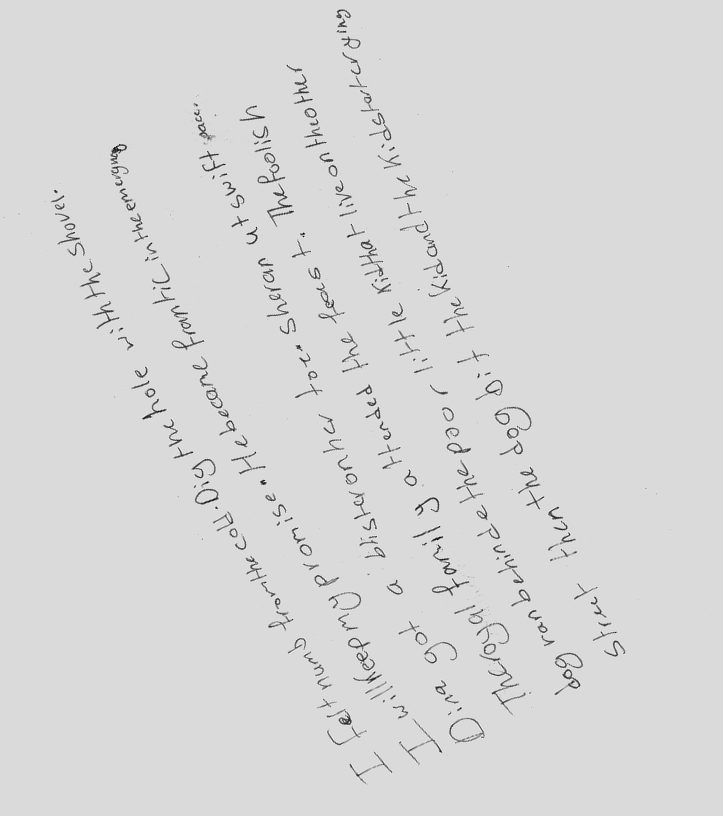 I felt numb from the cold. Dig the hole with the shovel.
I will keep my promise. He became frantic in the emergency
Dina got a blister on her toe. She ran at swift pace.
The royal family attended the feast. The foolish
dog ran behinde the poor little kid that live on the other
street then the dog bit the kid and the kid started crying